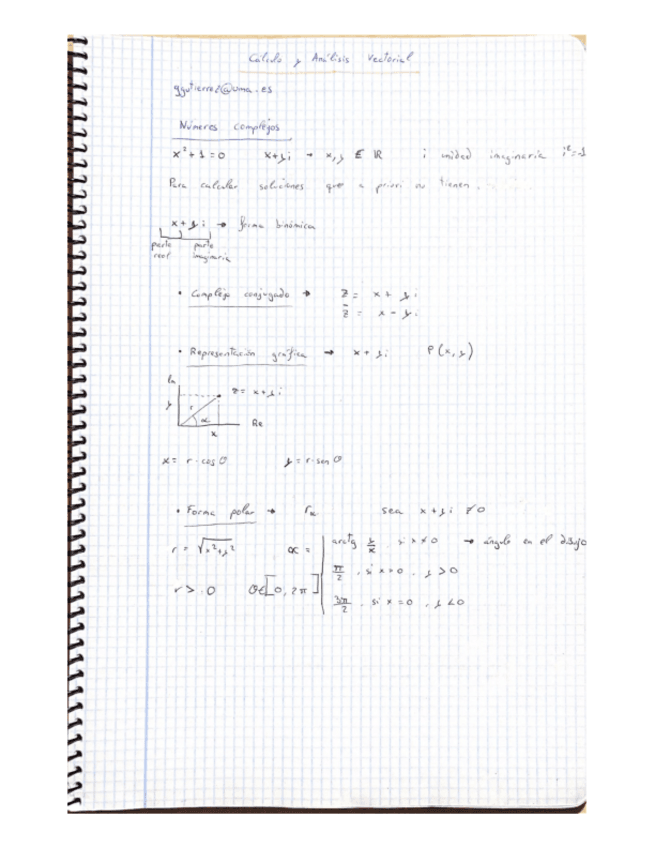 Cálculo y Análisis Vectorial
ggutierrez@uma.es
Números complejos
x² + 1 = 0   x+yi → x, y ∈ ℝ   i unidad imaginaria i²=-1
Para calcular soluciones que a priori no tienen.
x + y i → forma binómica
parte real   parte imaginaria
• Complejo conjugado → z = x + yi
z̄ = x - yi
• Representación gráfica → x + yi   P(x, y)
Im
z = x + yi
y   r   α   Re
x
x = r · cos θ   y = r · sen θ
• Forma polar → rα   sea x + yi ≠ 0
r = √x²+y²   α =   arctg y/x , si x≠0 → ángulo en el dibujo
π/2 , si x=0 , y > 0
r > 0   θ∈[0, 2π]
3π/2 , si x = 0 , y < 0